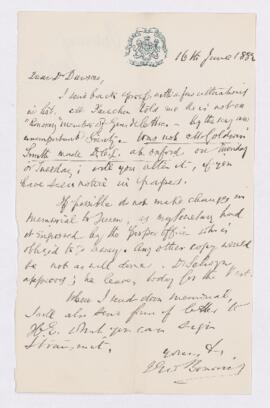 16th June 1882
Dear Dr Dawson,
I send back proof with a few alterations
in list. M. Faucher told me he is not an
"Honorary" member of
unimportant Society. Was not Mr Goldwin
Smith made D.C.L. at Oxford on Monday
or Tuesday; will you alter it, if you
have seen notice in papers.
If possible do not make changes in
Memorial to Queen, as my Secretary had
it engrossed by the proper officer who is
obliged to go away. Any other copy would
be not as well done. Dr Selwyn
approves; he leaves today for the West.
When I send down memorial,
I will also send form of letter to
H.E. which you can sign
yours, &c,